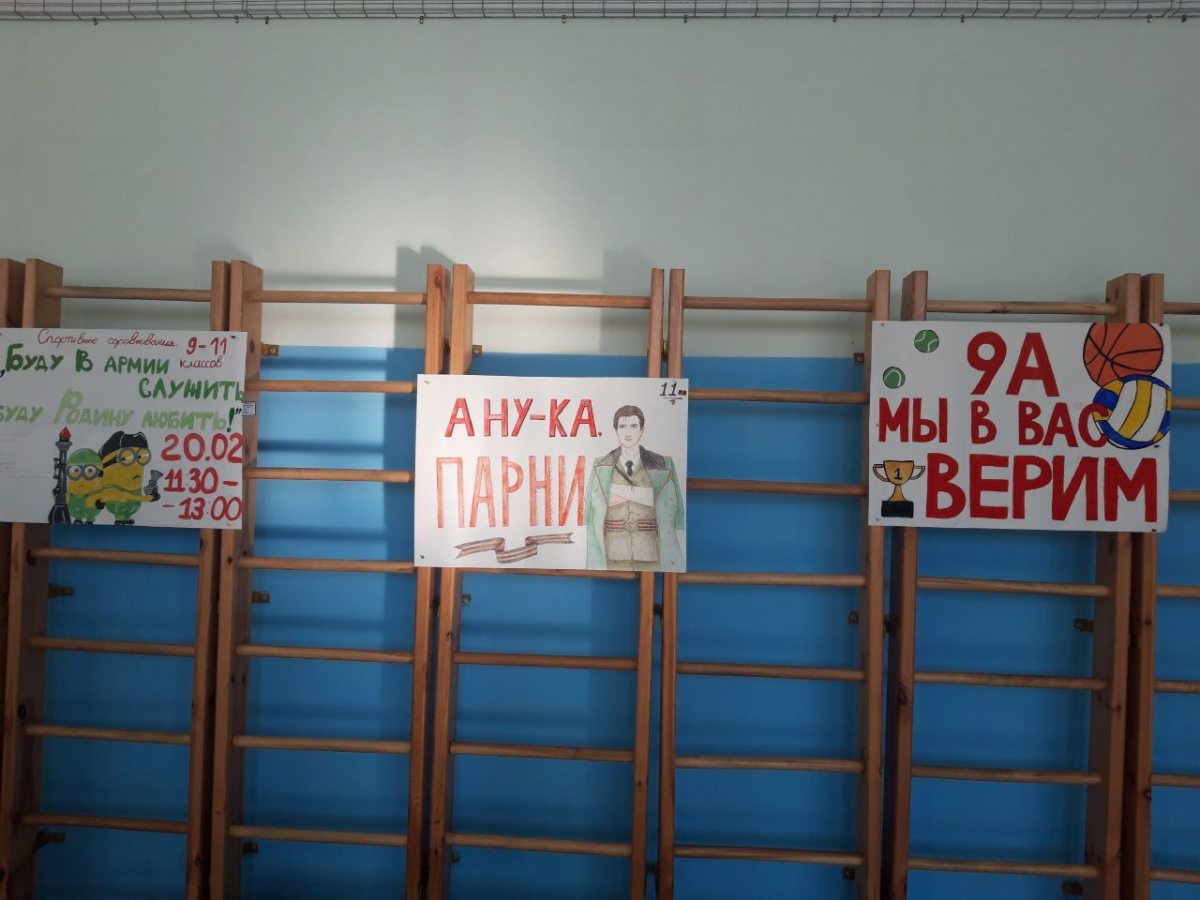 Спортивные соревнования 9-11
классов
„Буду в армии
служить
буду Родину любить!"
20.02
11.30 -
- 13:00
А НУ-КА,
ПАРНИ
11
9А
МЫ В ВАС
ВЕРИМ
1